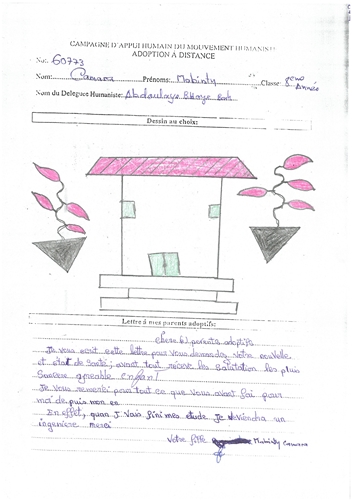 CAMPAGNE D'APPUI HUMAIN DU MOUVEMENT HUMANISTE
ADOPTION A DISTANCE
No: 60773
Nom: Camara Prénoms: Mabinty Classe: 8eme Année
Nom du Delegue Humaniste: Abdoulaye Bah
Dessin au choix:
Lettre à mes parents adoptifs:
chere (s) parents adoptifs
Je vous ecrit cette lettre pour vous demandes votre nouvelle
et etat de santé; avant tout recevez les salutation les plus
Sincere agreable enfant
Je vous remercie pour tout ce que vous avant fai pour
moi depuis mon en
En effet, quan J vais fini mes etude Je deviendra un
ingeniere merci
Votre fille Mabinty Camara